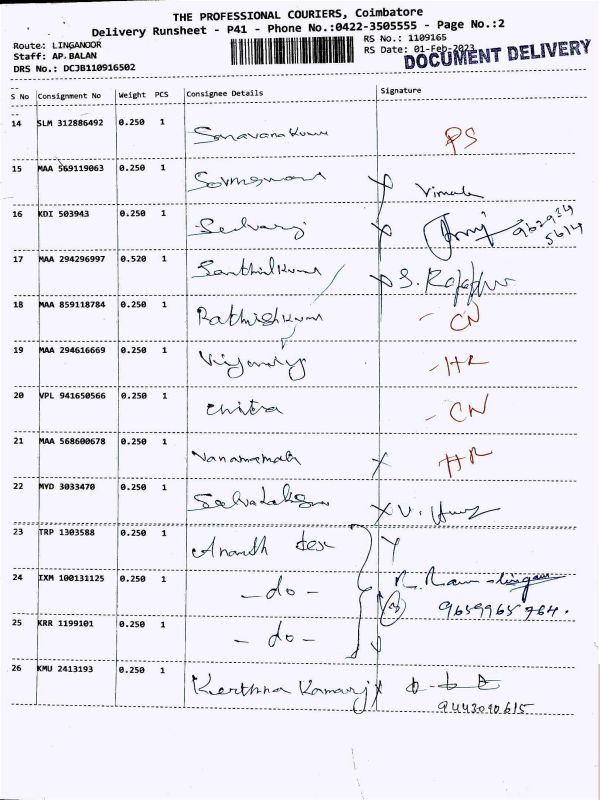 THE PROFESSIONAL COURIERS, Coimbatore
Delivery Runsheet - P41 - Phone No.:0422-3505555 - Page No.:2
Route: LINGANOOR
Staff: AP.BALAN
DRS No.: DCJB110916502
RS No.: 1109165
RS Date: 01-Feb-2023
DOCUMENT DELIVERY
S No Consignment No Weight PCS Consignee Details Signature
14 SLM 312886492 0.250 1 PS
15 MAA 569119063 0.250 1 Vimala
16 KDI 503943 0.250 1 Selvaraj
17 MAA 294296997 0.520 1 Santhilkumar
18 MAA 859118784 0.250 1 Rathishkumar - CN
19 MAA 294616669 0.250 1 - HR
20 VPL 941650566 0.250 1 Chitra - CN
21 MAA 568600678 0.250 1 Vanamamalai X HR
22 MYD 3033470 0.250 1 X V.
23 TRP 1303588 0.250 1 Ananth
24 IXM 100131125 0.250 1 - do - R. Ramalingam
3 9659965764.
25 KRR 1199101 0.250 1 - do -
26 KMU 2413193 0.250 1 Keerthna Kamaraj
9443090615